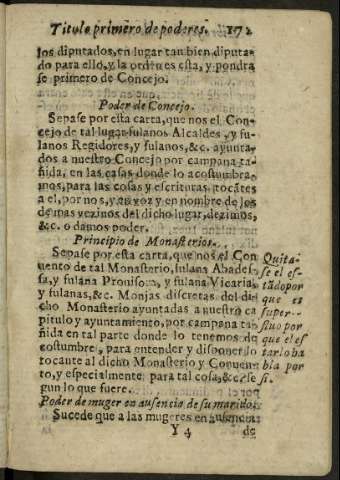 Titulo primero de poderes. 172
los diputados, en lugar tan bien diputa-
do para ello, y la orden es esta, y pondra
se primero de Concejo.
Poder de Concejo.
Sepase por esta carta, que nos el Con-
cejo de tal lugar fulanos Alcaldes, y fu-
lanos Regidores, y fulanos, &c. ayunta-
dos a nuestro Concejo por campana ta-
ñida, en las casas donde lo acostumbra-
mos, para las cosas y escrituras tocãtes
a el, por nos, y en voz y en nombre de los
demas vezinos del dicho lugar, dezimos,
&c. o damos poder.
Principio de Monasterios.
Sepase por esta carta, que nos el Con
uento de tal Monasterio, fulana Abades-
sa, y fulana Prouisora, y fulana Vicaria,
y fulanas, &c. Monjas discretas del di-
cho Monasterio ayuntadas a nuestro ca
pitulo y ayuntamiento, por campana tañ
ñida en tal parte donde lo tenemos de
costumbre, para entender y disponer lo
tocante al dicho Monasterio y Conuen
to, y especialmente para tal cosa, &c. se
gun lo que fuere.
Quita-
se el es-
tado por
que es
super-
fluo por
que el es
tar lo ha
bla por
si.
Poder de muger en ausencia de su marido.
Sucede que a las mugeres en ausencia
Y 4 de